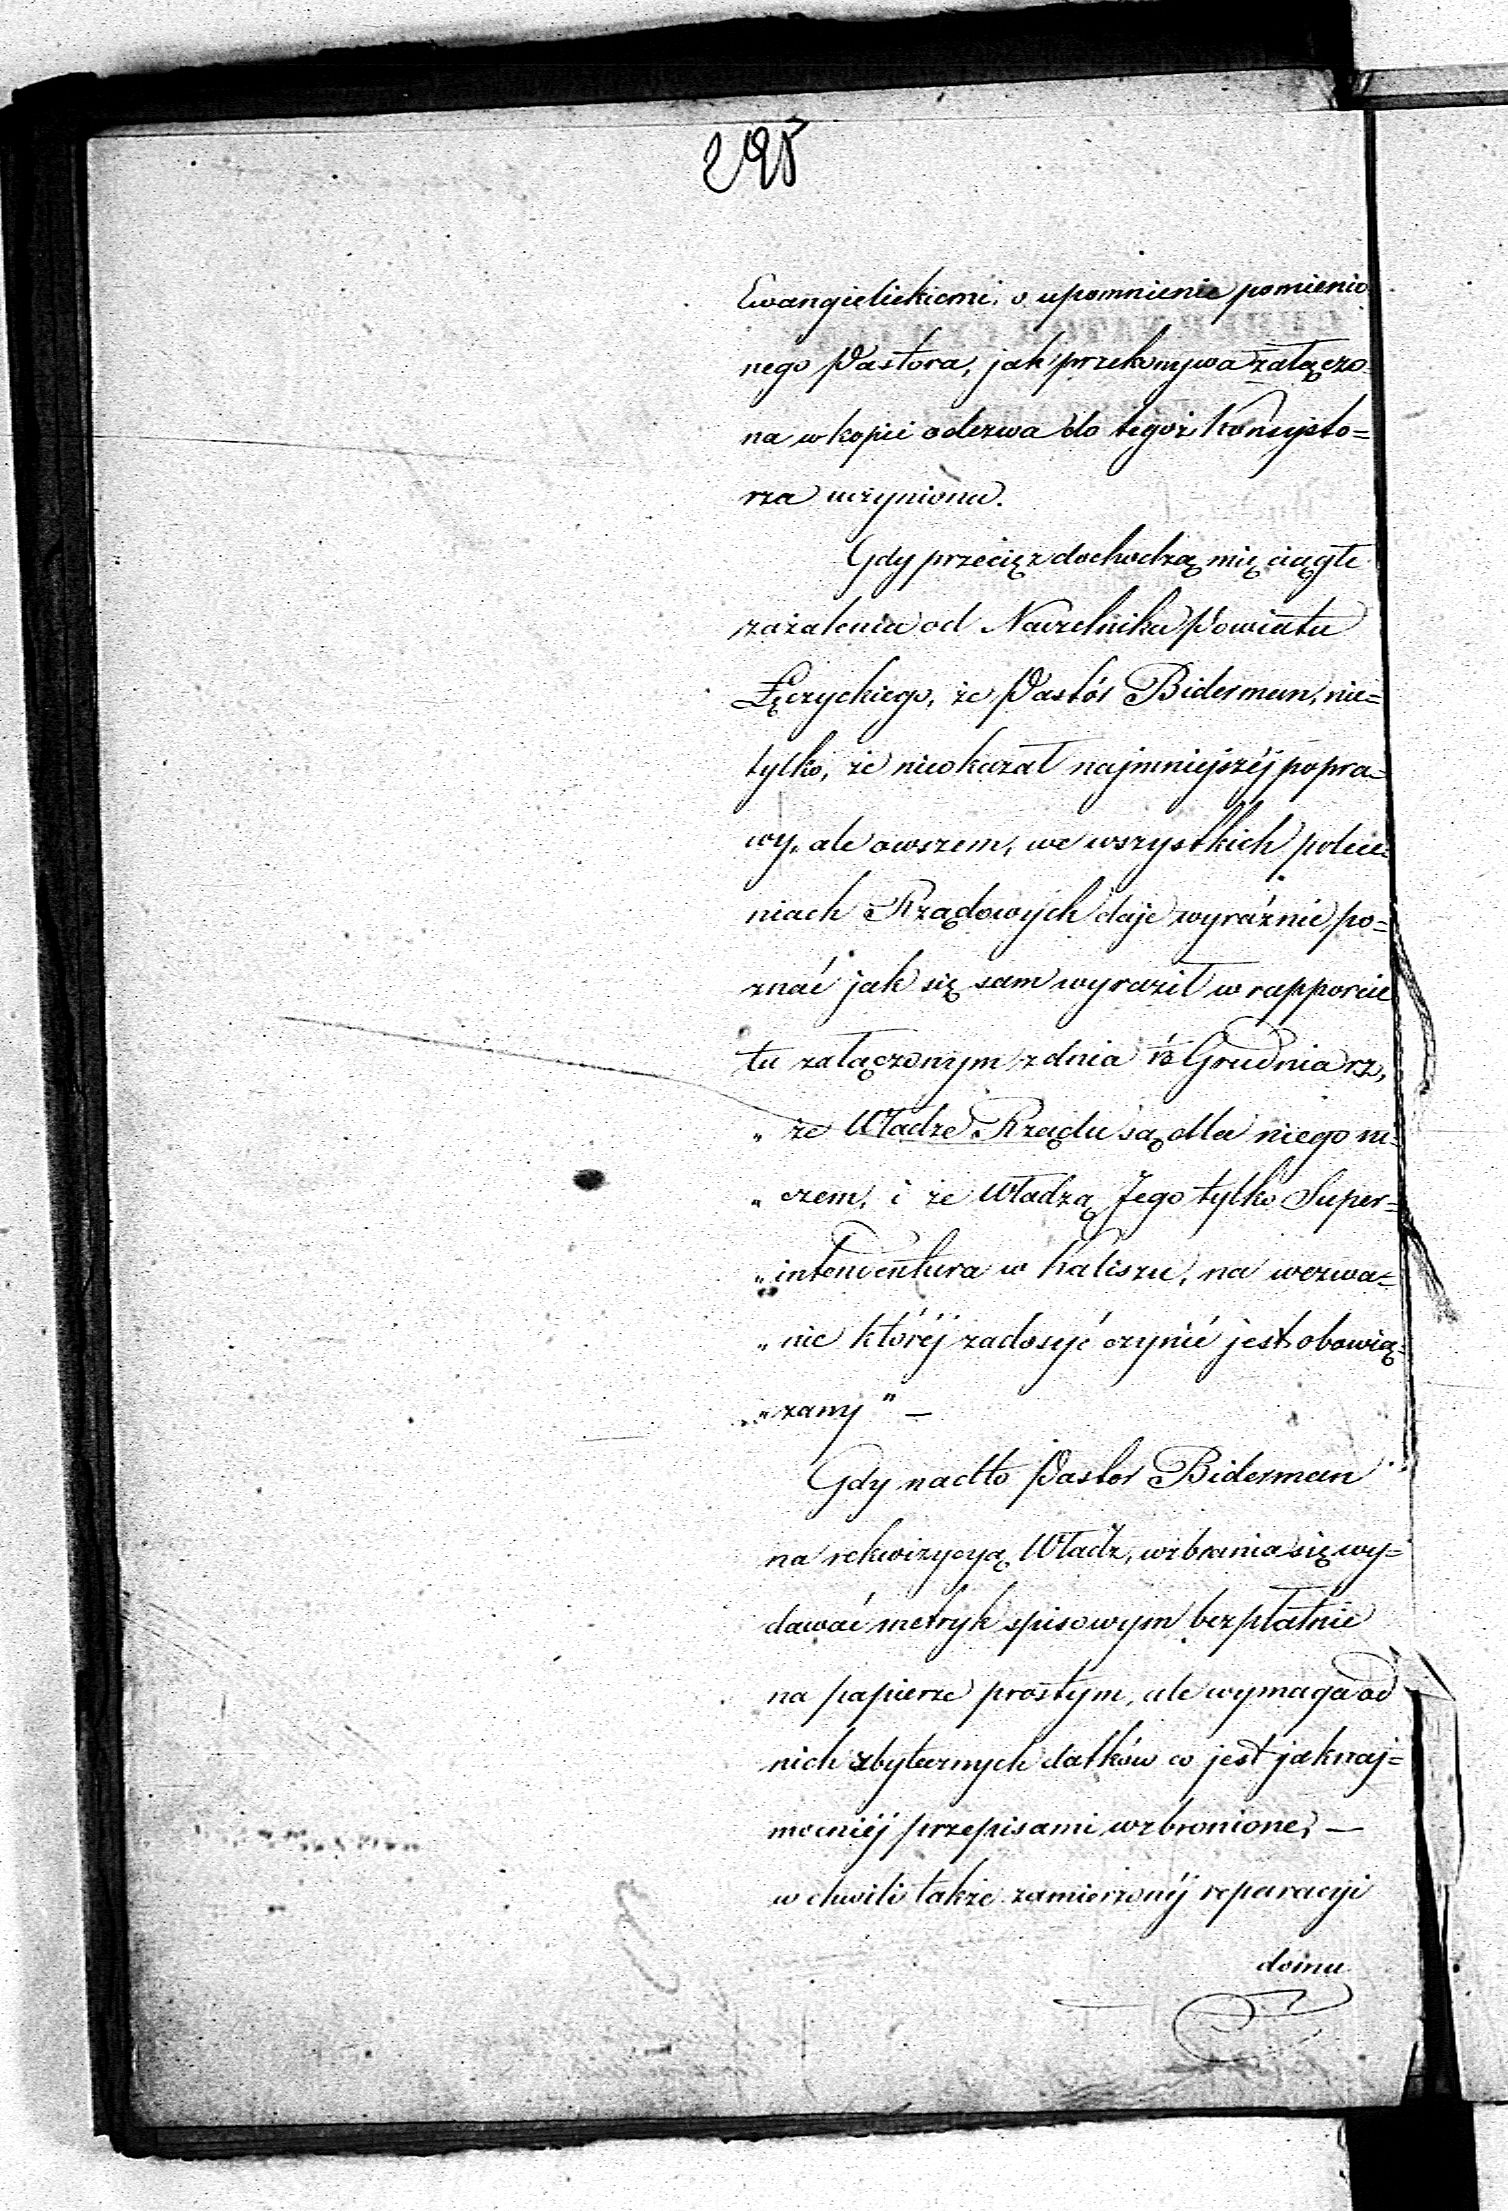 295
Ewangielickiemi, o upomnienie pomienio
nego Pastora, jak przekonywa załączo-
na w kopii odezwa do tegoż Konsysto=
rza uczyniona.
Gdy przeciąż dochodzą mię ciągłe
zażalenia od Naczelnika Powiatu
Łęczyckiego, że Pastór Biderman, nie=
tylko, że nieokazał najmniejszéj popra=
wy, ale owszem, we wszystkich polece=
niach Rządowych daje wyraźnie po=
znać jak się sam wyraził w rapporcie
tu załączonym z dnia Grudnia rz,
„ że Władze Rządu są dla niego ni=
„ czem, i że Władzą Jego tylko Super=
„ intendentura w Kaliszu, na wezwa=
„ nie któréj zadosyć czynić jest obowią=
„ zany" —
Gdy nadto Pastor Biderman
na rekwizycyą Władz, wzbrania się wy=
dawać metryk spisowym bezpłatnie
na papierze prostym, ale wymaga od
nich zbytecznych datków co jest jaknaj=
mocniéj przepisami wzbronione, —
w chwili także zamierzonéj reparacyi
domu